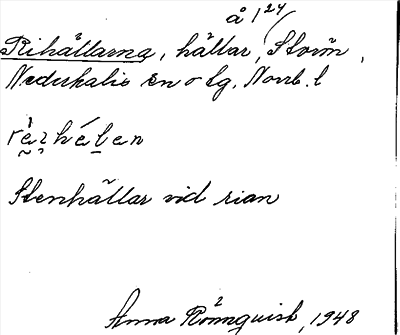 å 1²⁴
Rihällarna, hällar, Storön,
Nederkalix sn o tg, Norrb. l
Stenhällar vid rian
Anna Rönnquist, 1948